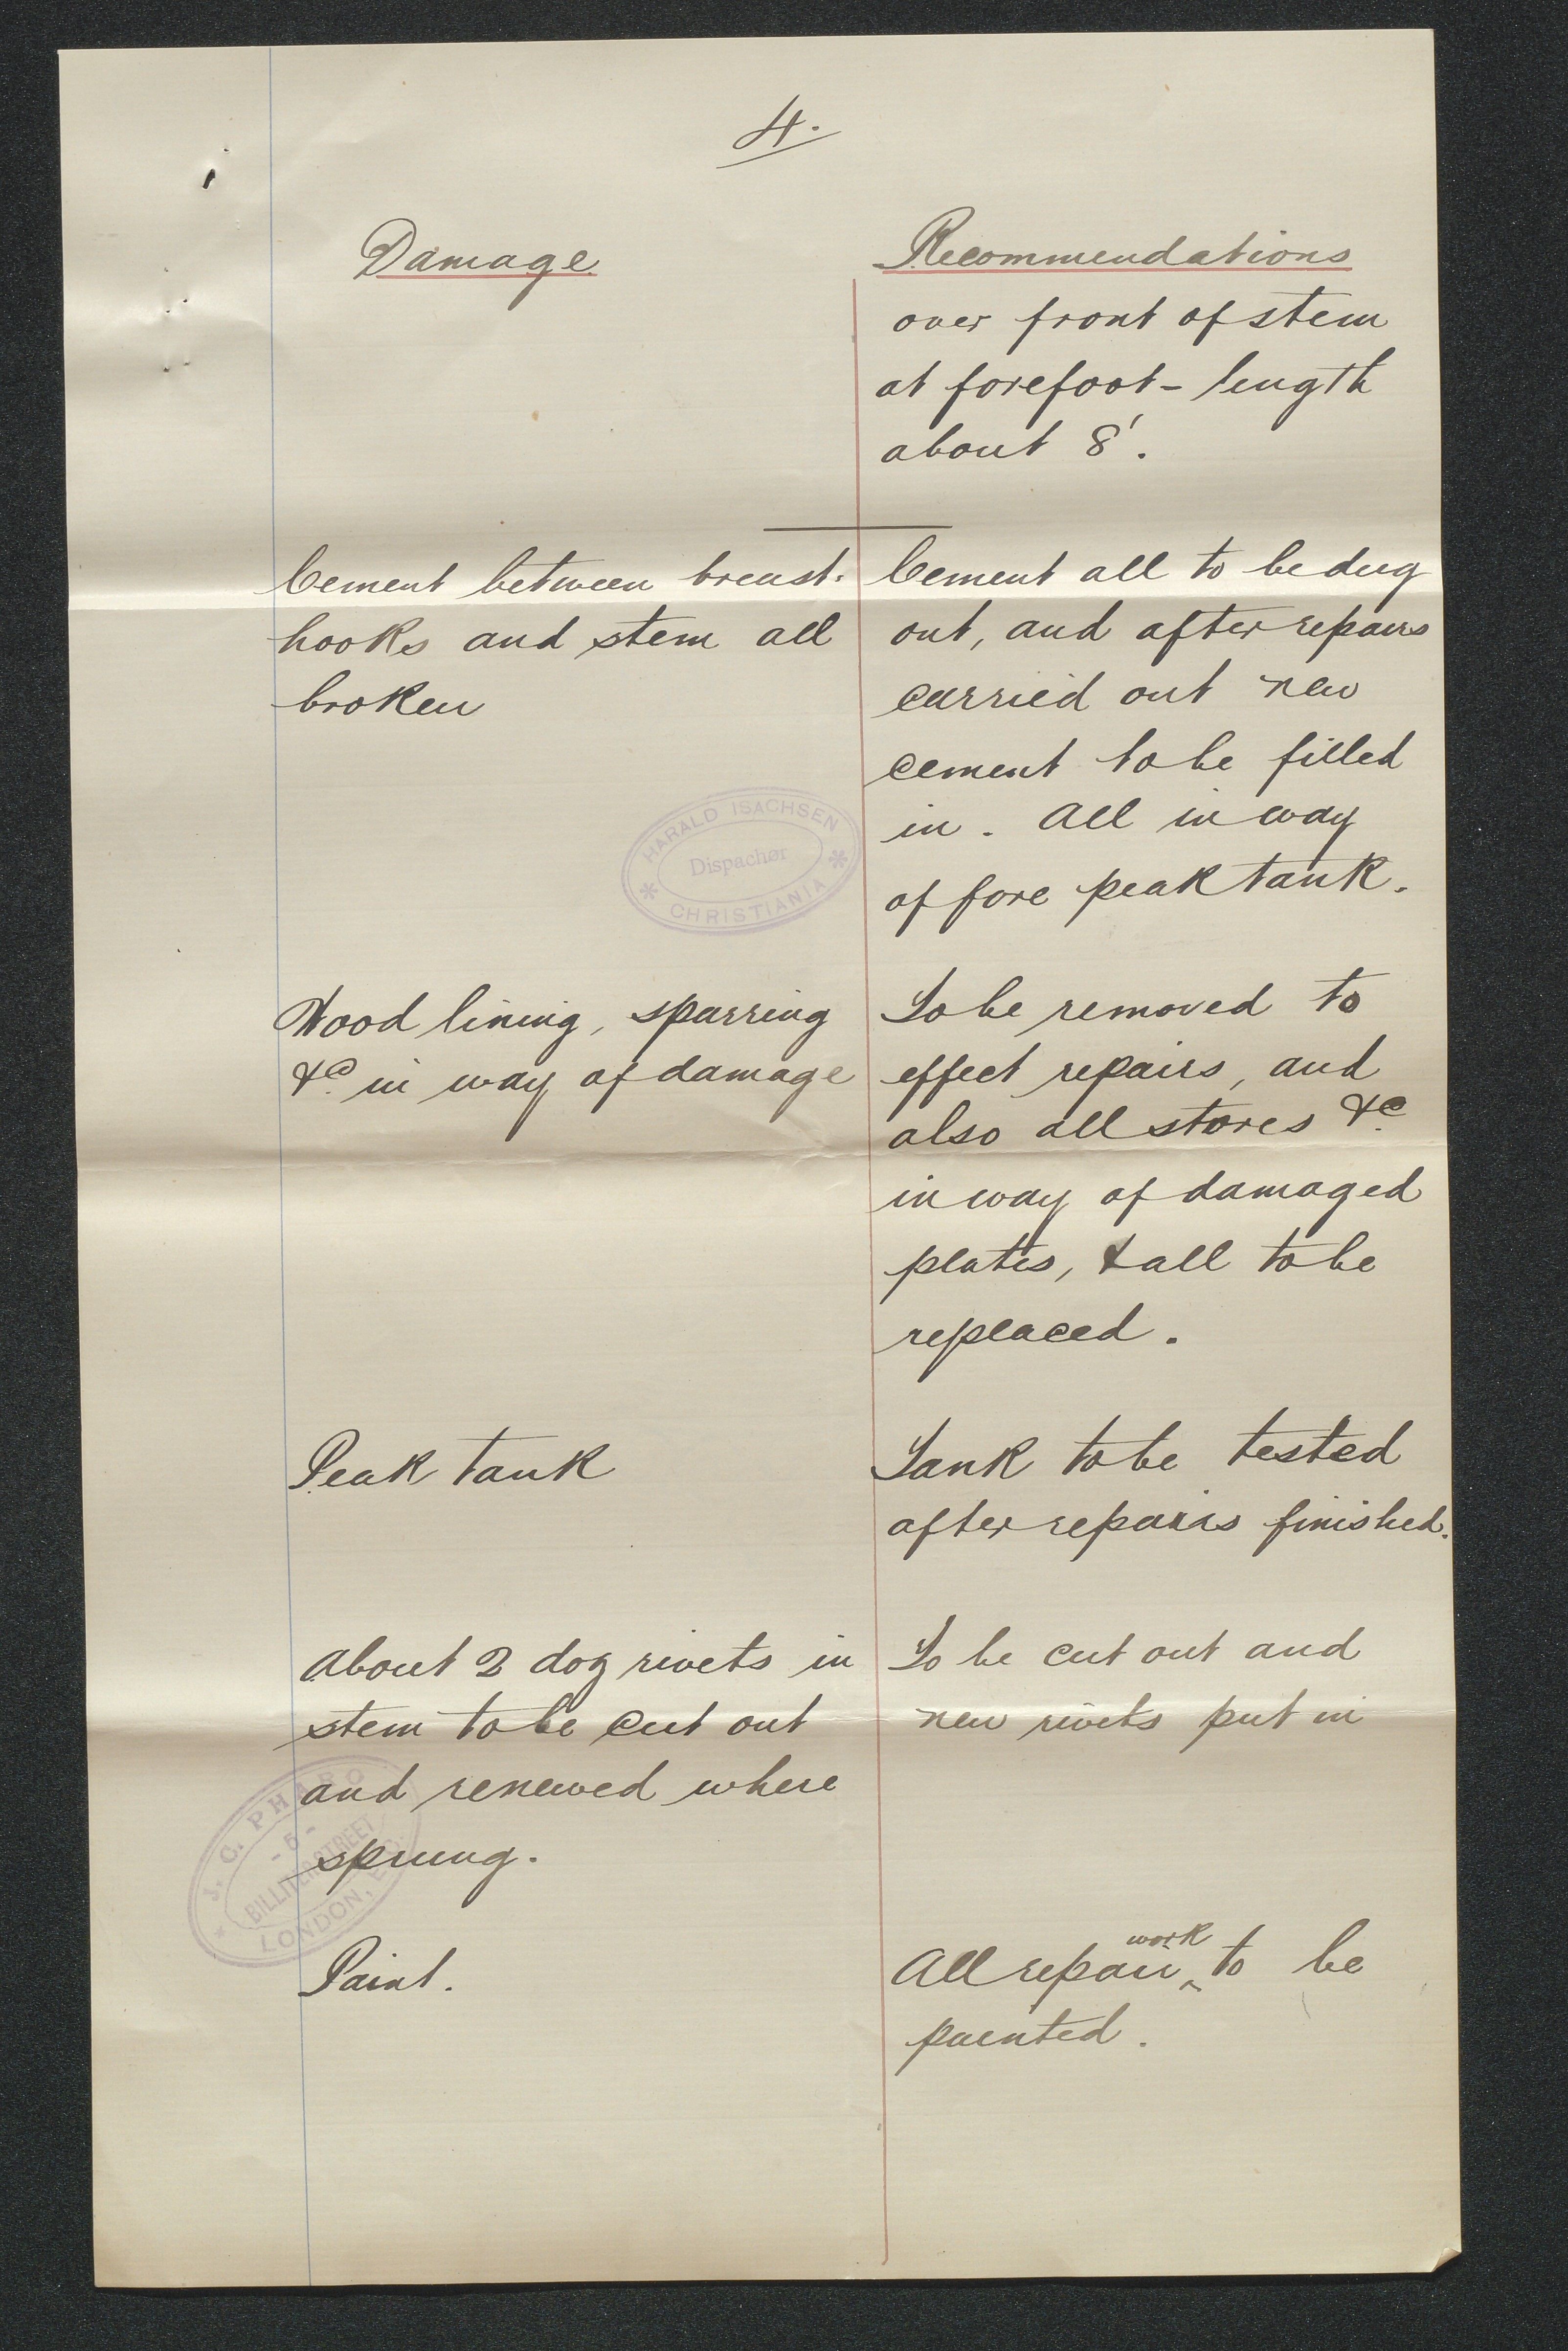 4.
Damage
Recommendations
over front of stem
at forefoot - length
about 8'.
Cement between breast-
hooks and stem all
broken
Cement all to be dug
out, and after repairs
carried out new
cement to be filled
in. All in way
of fore peak tank.
HARALD ISACHSEN
Dispachør
CHRISTIANIA
Wood lining, sparring
&c in way of damage
To be removed to
effect repairs, and
also all stores &c
in way of damaged
plates, & all to be
replaced.
Peak tank
Tank to be tested
after repairs finished.
About 2 doz rivets in
stem to be cut out
and renewed where
sprung.
To be cut out and
new rivets put in
J. C. PHARO
- 5 -
BILLITER STREET
LONDON, E.C.
Paint.
All repair work to be
painted.